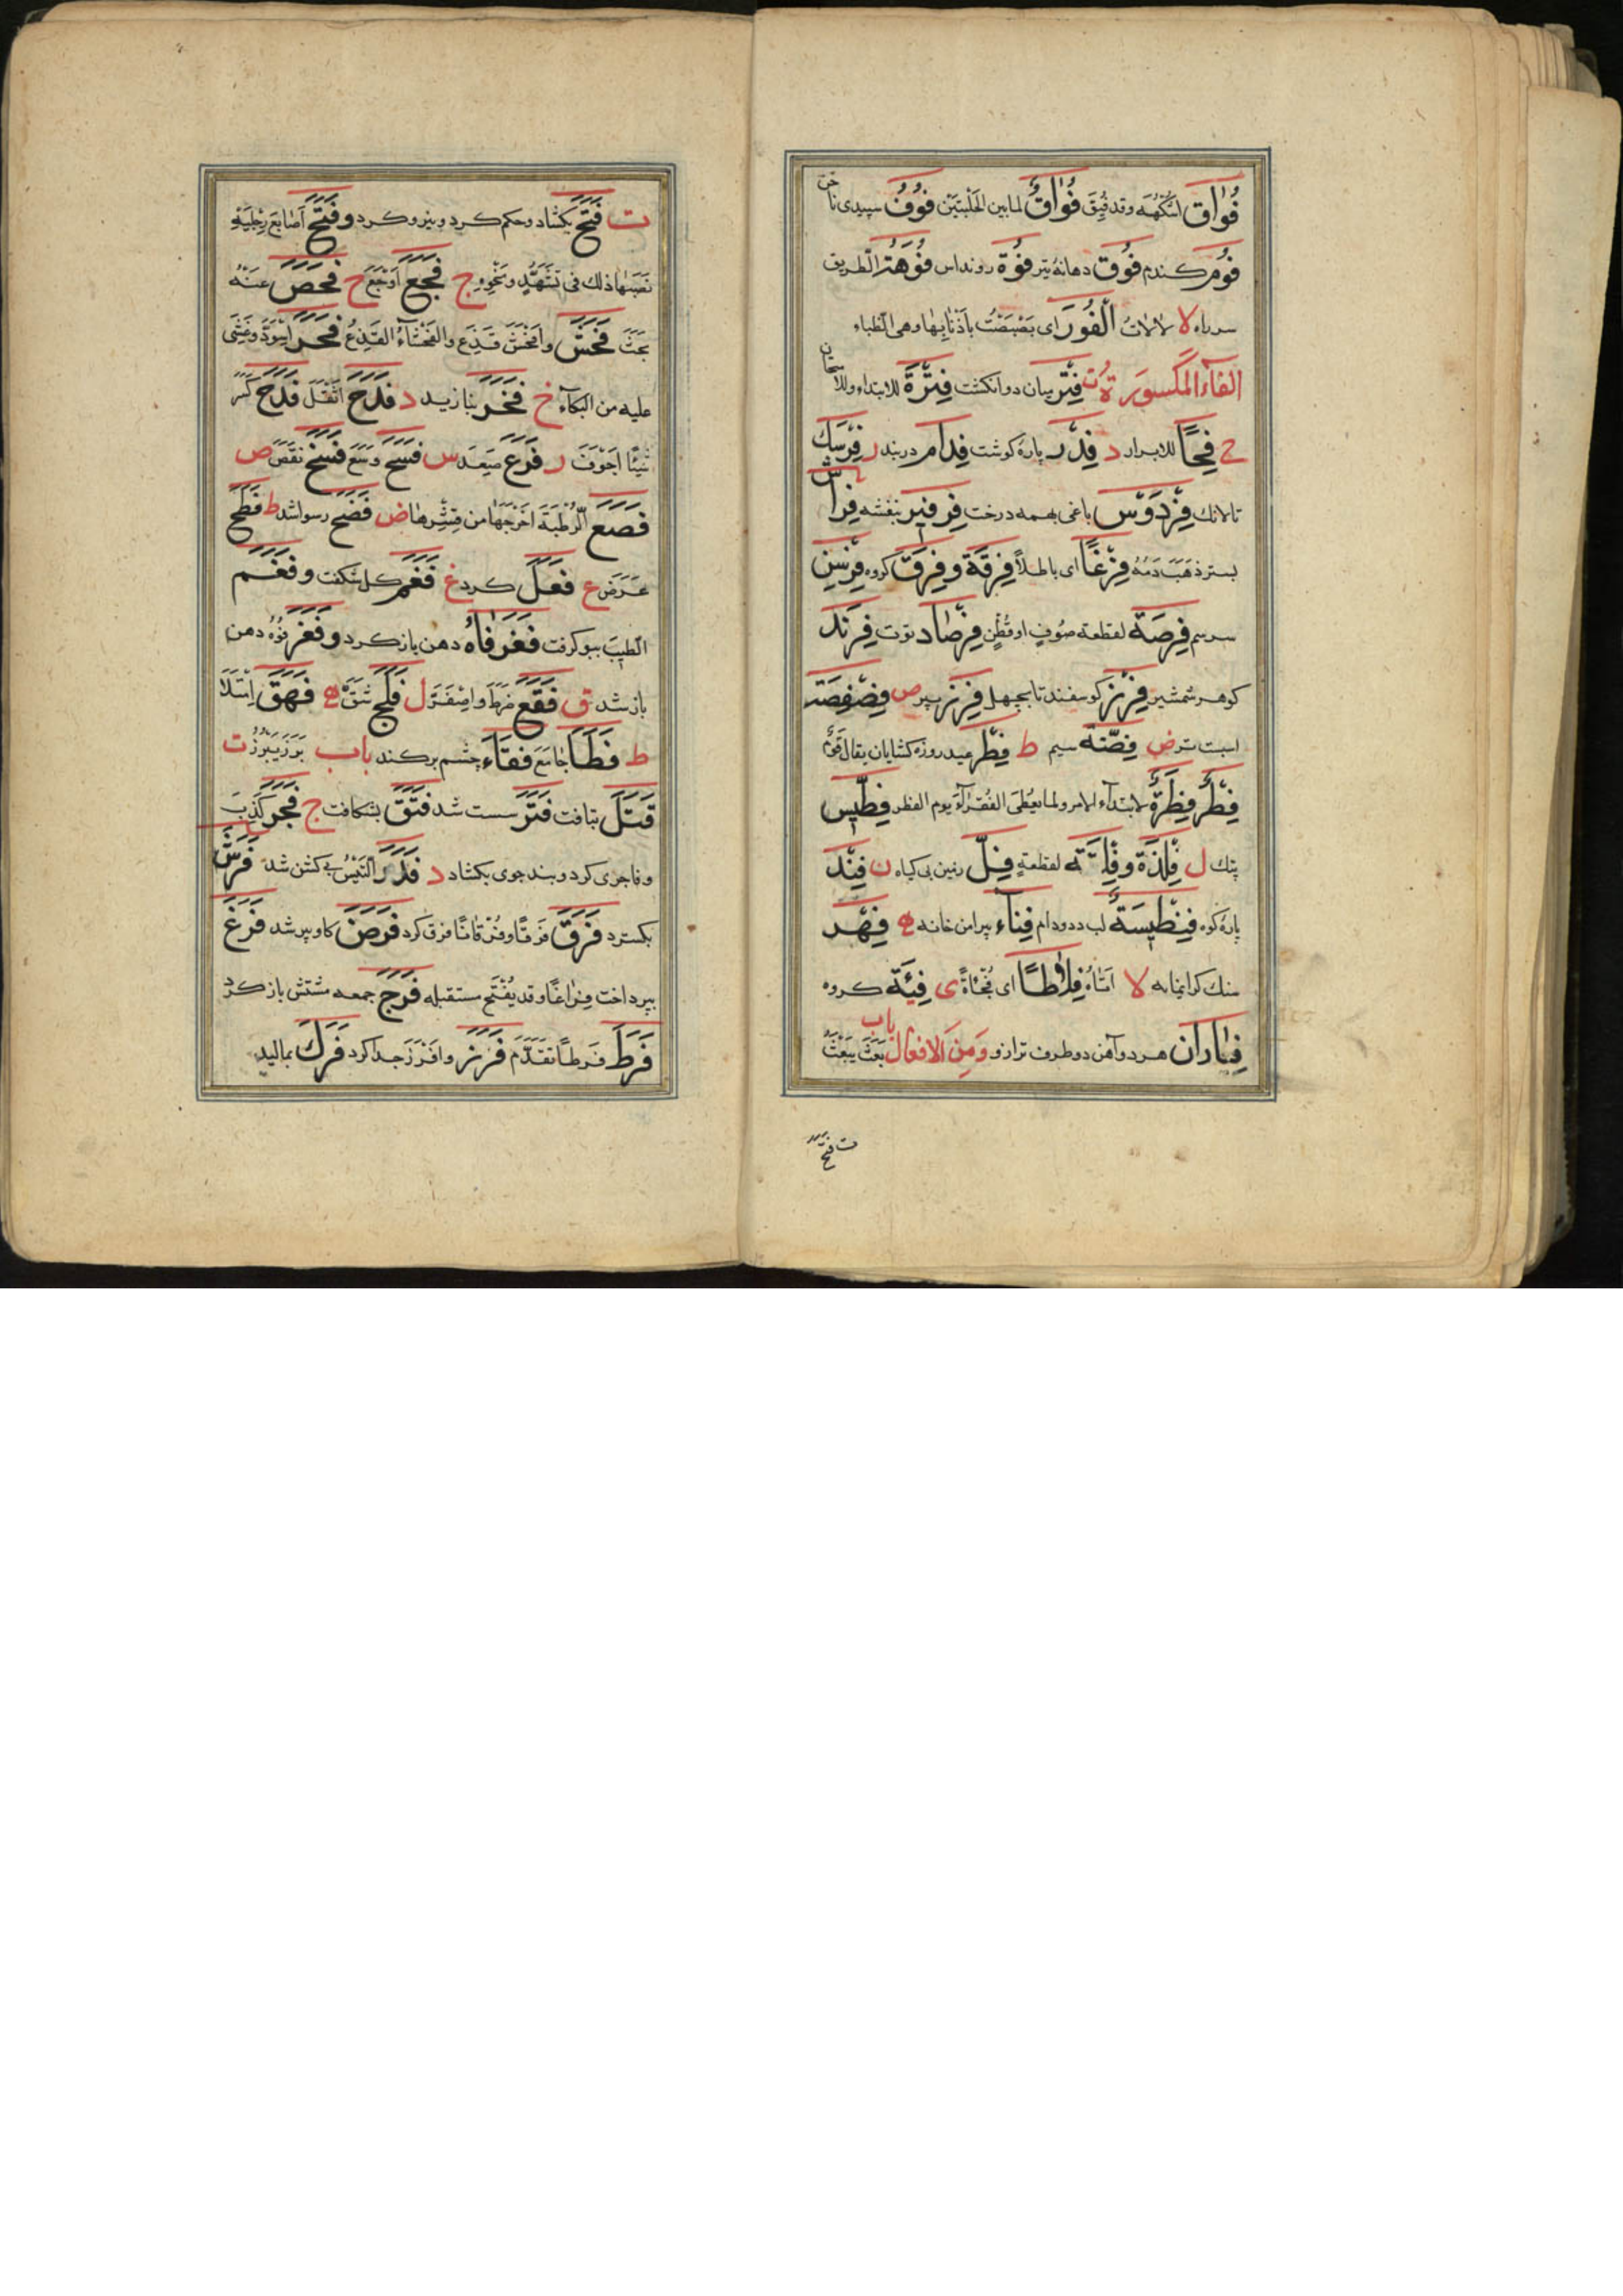 فُوَاق اسْكُهَه وقد فُيِقَ فُوَاقٌ لما بين الحَلْبتَيْن فُوفٌ سپیدی ناخن
فُوم كندم فُوق دهانهٔ تیر فُوَّة روناس فُوَّهَة الطريق
سر راه لا لالات الْفُورُ ای بَصْبَصَت باَذْنابِها وهی الظباء
الفاء المكسورة ت فِتْر میان دو انکشت فِتْرَة للابتداء
ح فِحًا للابزار د فِدْر پارهٔ كوشت فِدام دربند ر فِرْسِك
تالانك فِرْدَوْس باغی بهمه درخت فِرْفِير بنفشه فِراش
بستر ذهبَ دَمُه فِرْغًا ای باطلاً فِرْقَة وفِرَق كروه فِرْسِن
سر سم فِرْصَة لقطعة صُوفٍ او قُطْنٍ فِرْصاد توت فِرَنْد
كوهر شمشير فِزْر كوسفند تا بچهل فِرْز ص فِصْفِصَة
اسبت تر ض فِضّة سیم ط فِطْر عید روزه كشایان يقال قَوْمٌ
فِطْرٌ فِطْرَةٌ لابتداء الامر ولما يُعْطَى الفُقَرآءَ يوم الفطر فِطِّيس
پتك ل فِلْذَة وفِلَّة لقطعةٍ فِلّ زمین بی كیاه ن فِنْد
پارهٔ كوه فِنْطِيسَةٌ لب دد ودام فِناء پیرامن خانه ه فِهْر
سنك لا اَتاهُ فِلاطًا ای فُجاءَةً ی فِئَة كروه
فِياران هر دو آهن دو طرف ترازو وَمِنَ الافعال باب بَعَثَ يَبْعَثُ
ت فتح
ت فَتَحَ بكشاد وحكم كرد ونیرو كرد وفَتَخَ اَصابِعَ رِجْلَيْهِ
نَصَبَها ذلك فى تَشَهُّدٍ ونَحْوِهِ ج فَجَعَ اَوْجَعَ ح فَحَصَ عَنْهُ
بَحَثَ فَحَشَ واَفْحَشَ قَذِعَ والفَحْشاءُ القَذَعُ فَحَمَ اِسْوَدَّ وغُشِىَ
عليه من البكآء خ فَخَرَ بنازید د فَدَحَ اَثْقَلَ فَدَخَ كَسَرَ
شَيْئًا اَجْوَفَ ر فَرَعَ صَعِدَ س فَسَحَ وَسَّعَ فَسَخَ نَقَضَ ص
فَصَعَ الرُّطَبَةَ اَخْرَجَها من قِشْرِها ض فَضَحَ رسوا شد ط فَطَحَ
عَرَّضَ ع فَعَلَ كرد غ فَغَمَ كل شكفت وفَغَمَ
الطّيبَ ببو كرفت فَغَرَ فاهُ دهن باز كرد وفَغَرَ فُوهُ دهن
باز شد ق فَقَعَ ضَرَطَ واصْفَرَّ ل فَلَجَ شَقَّ ه فَهَقَ اِمْتَلأَ
ط فَطَأَ جامَعَ فَقَأَ چشم بركند باب بَرَزَ يَبْرُزُ ت
فَتَلَ بتافت فَتَرَ سست شد فَتَقَ بشكافت ج فَجَرَ كَذَبَ
وفاجری كرد وبند جوی بكشاد د فَدَرَ التَّيْسُ بی كشن شد فَرَشَ
بكسترد فَرَقَ فَرْقًا وفُرْقانًا فرق كرد فَرَضَ كاو پیر شد فَرَغَ
بپرداخت فِراغًا وقد يُفْتَح مستقبله فَرَجَ جمعه مشتش باز كرد
فَرَطَ فَرَطًا تَقَدَّمَ فَرَزَ واَفْرَزَ جدا كرد فَرَكَ بمالید